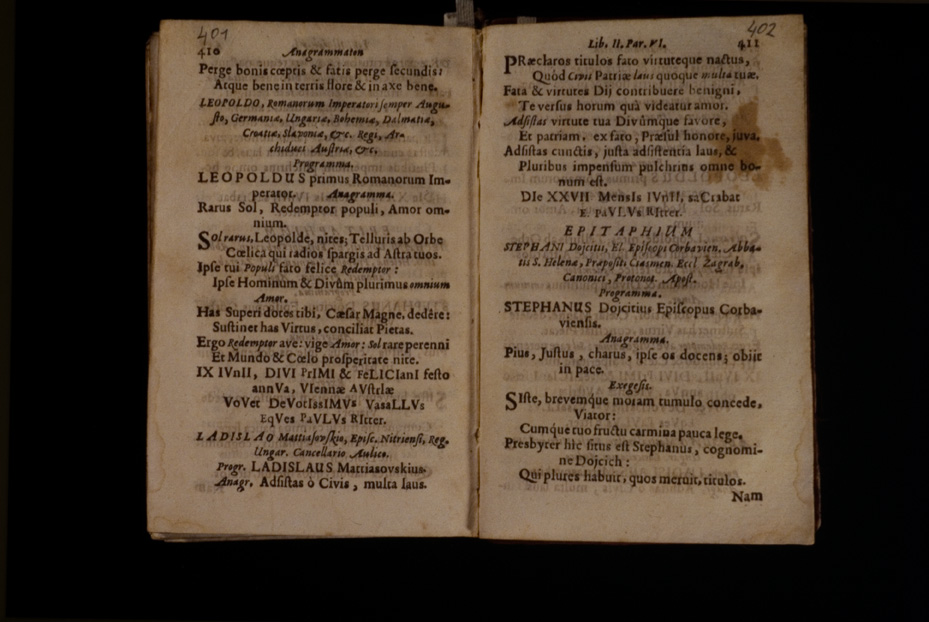 401
410 Anagrammaton
Perge bonis cœptis & fatis perge secundis:
Atque bene in terris flore & in axe bene.
LEOPOLDO, Romanorum Imperatori semper Augu-
sto, Germaniæ, Ungariæ, Bohemiæ, Dalmatiæ,
Croatiæ, Slavoniæ, &c. Regi, Ar-
chiduci Austriæ, &c.
Programma.
LEOPOLDUS primus Romanorum Im-
perator. Anagramma.
Rarus Sol, Redemptor populi, Amor om-
nium.
Sol rarus, Leopolde, nites; Telluris ab Orbe
Cœlica qui radios spargis ad Astra tuos.
Ipse tui Populi fato felice Redemptor:
Ipse Hominum & Divûm plurimus omnium
Amor.
Has Superi dotes tibi, Cæsar Magne, dedêre:
Sustinet has Virtus, conciliat Pietas.
Ergo Redemptor ave: vige Amor: Sol rare perenni
Et Mundo & Cœlo prosperitate nite.
IX IVnII, DIVI PrIMI & FeLICIanI festo
annVa, VIennæ AVstrIæ
VoVet DeVotIssIMVs VasaLLVs
EqVes PaVLVs RItter.
LADISLAO Mattiasovskio, Episc. Nitriensi, Reg.
Ungar. Cancellario Aulico.
Progr. LADISLAUS Mattiasovskius.
Anagr. Adsistas ò Civis, multa laus.
402
Lib. II. Par. VI. 411
PRæclaros titulos fato virtuteque nactus,
Quòd Civis Patriæ laus quoque multa tuæ.
Fata & virtutes Dij contribuere benigni,
Te versus horum quà videatur amor.
Adsistas virtute tua Divûmque favore,
Et patriam, ex fato, Præsul honore, juva.
Adsistas cunctis, justa adsistentia laus, &
Pluribus impensum pulchrius omne bo-
num est.
DIe XXVII MensIs IVnII, saCrabat
E. PaVLVs RItter.
EPITAPHIUM
STEPHANI Dojcitii, El. Episcopi Corbavien. Abba-
tis S. Helenæ, Præpositi Ciasmen. Eccl. Zagrab.
Canonici, Protonot. Apost.
Programma.
STEPHANUS Dojcitius Episcopus Corba-
viensis.
Anagramma.
Pius, Justus, charus, ipse os docens; obiit
in pace.
Exegesis.
SIste, brevemque moram tumulo concede,
Viator:
Cumque tuo fructu carmina pauca lege.
Presbyter hîc situs est Stephanus, cognomi-
ne Dojcich:
Qui plures habuit, quos meruit, titulos.
Nam